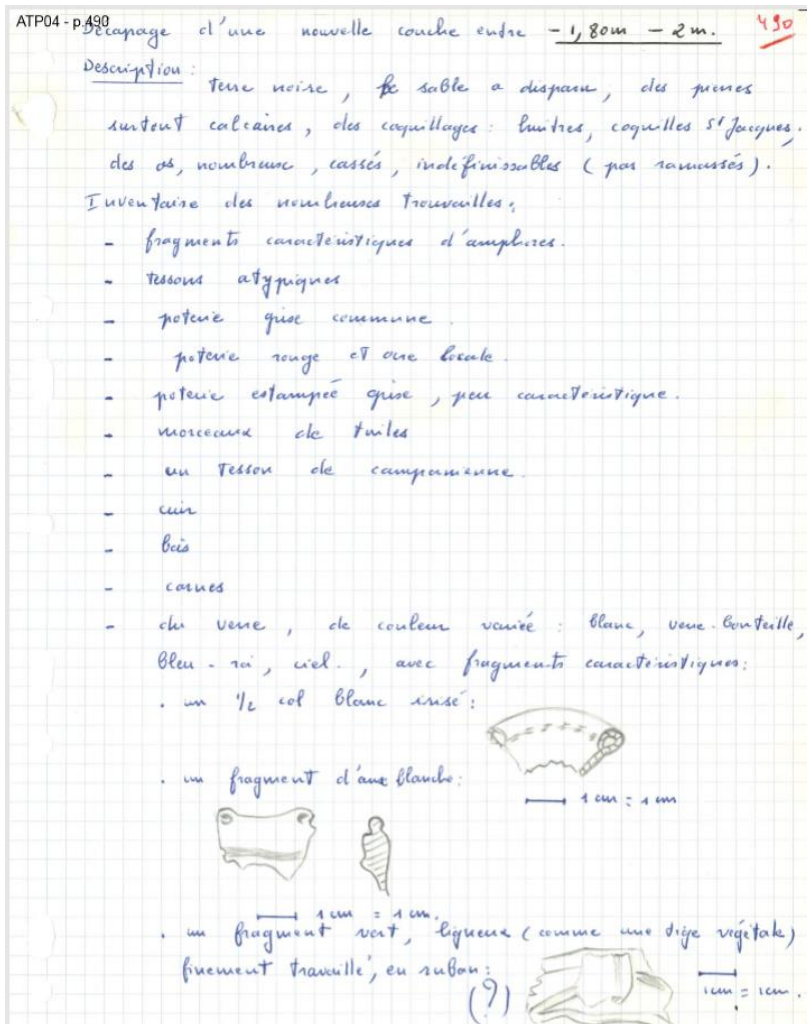 ATP04 - p.490
490
Décapage d'une nouvelle couche entre - 1,80m - 2m.
Description :
Terre noire, le sable a disparu, des pierres
surtout calcaires, des coquillages : huîtres, coquilles St Jacques,
des os, nombreux, cassés, indéfinissables (pas ramassés).
Inventaire des nombreuses trouvailles :
- fragments caractéristiques d'amphores.
- tessons atypiques
- poterie grise commune.
- poterie rouge et ocre locale.
- poterie estampée grise, peu caractéristique.
- morceaux de tuiles
- un tesson de campanienne.
- cuir
- bois
- cornes
- du verre, de couleur variée : blanc, verre-bouteille,
bleu-roi, ciel., avec fragments caractéristiques :
. un 1/2 col blanc irisé :
1 cm = 1 cm
. un fragment d'anse blanche :
1 cm = 1 cm.
. un fragment vert, ligneux (comme une tige végétale)
finement travaillé, en ruban :
(?)
1cm = 1cm.